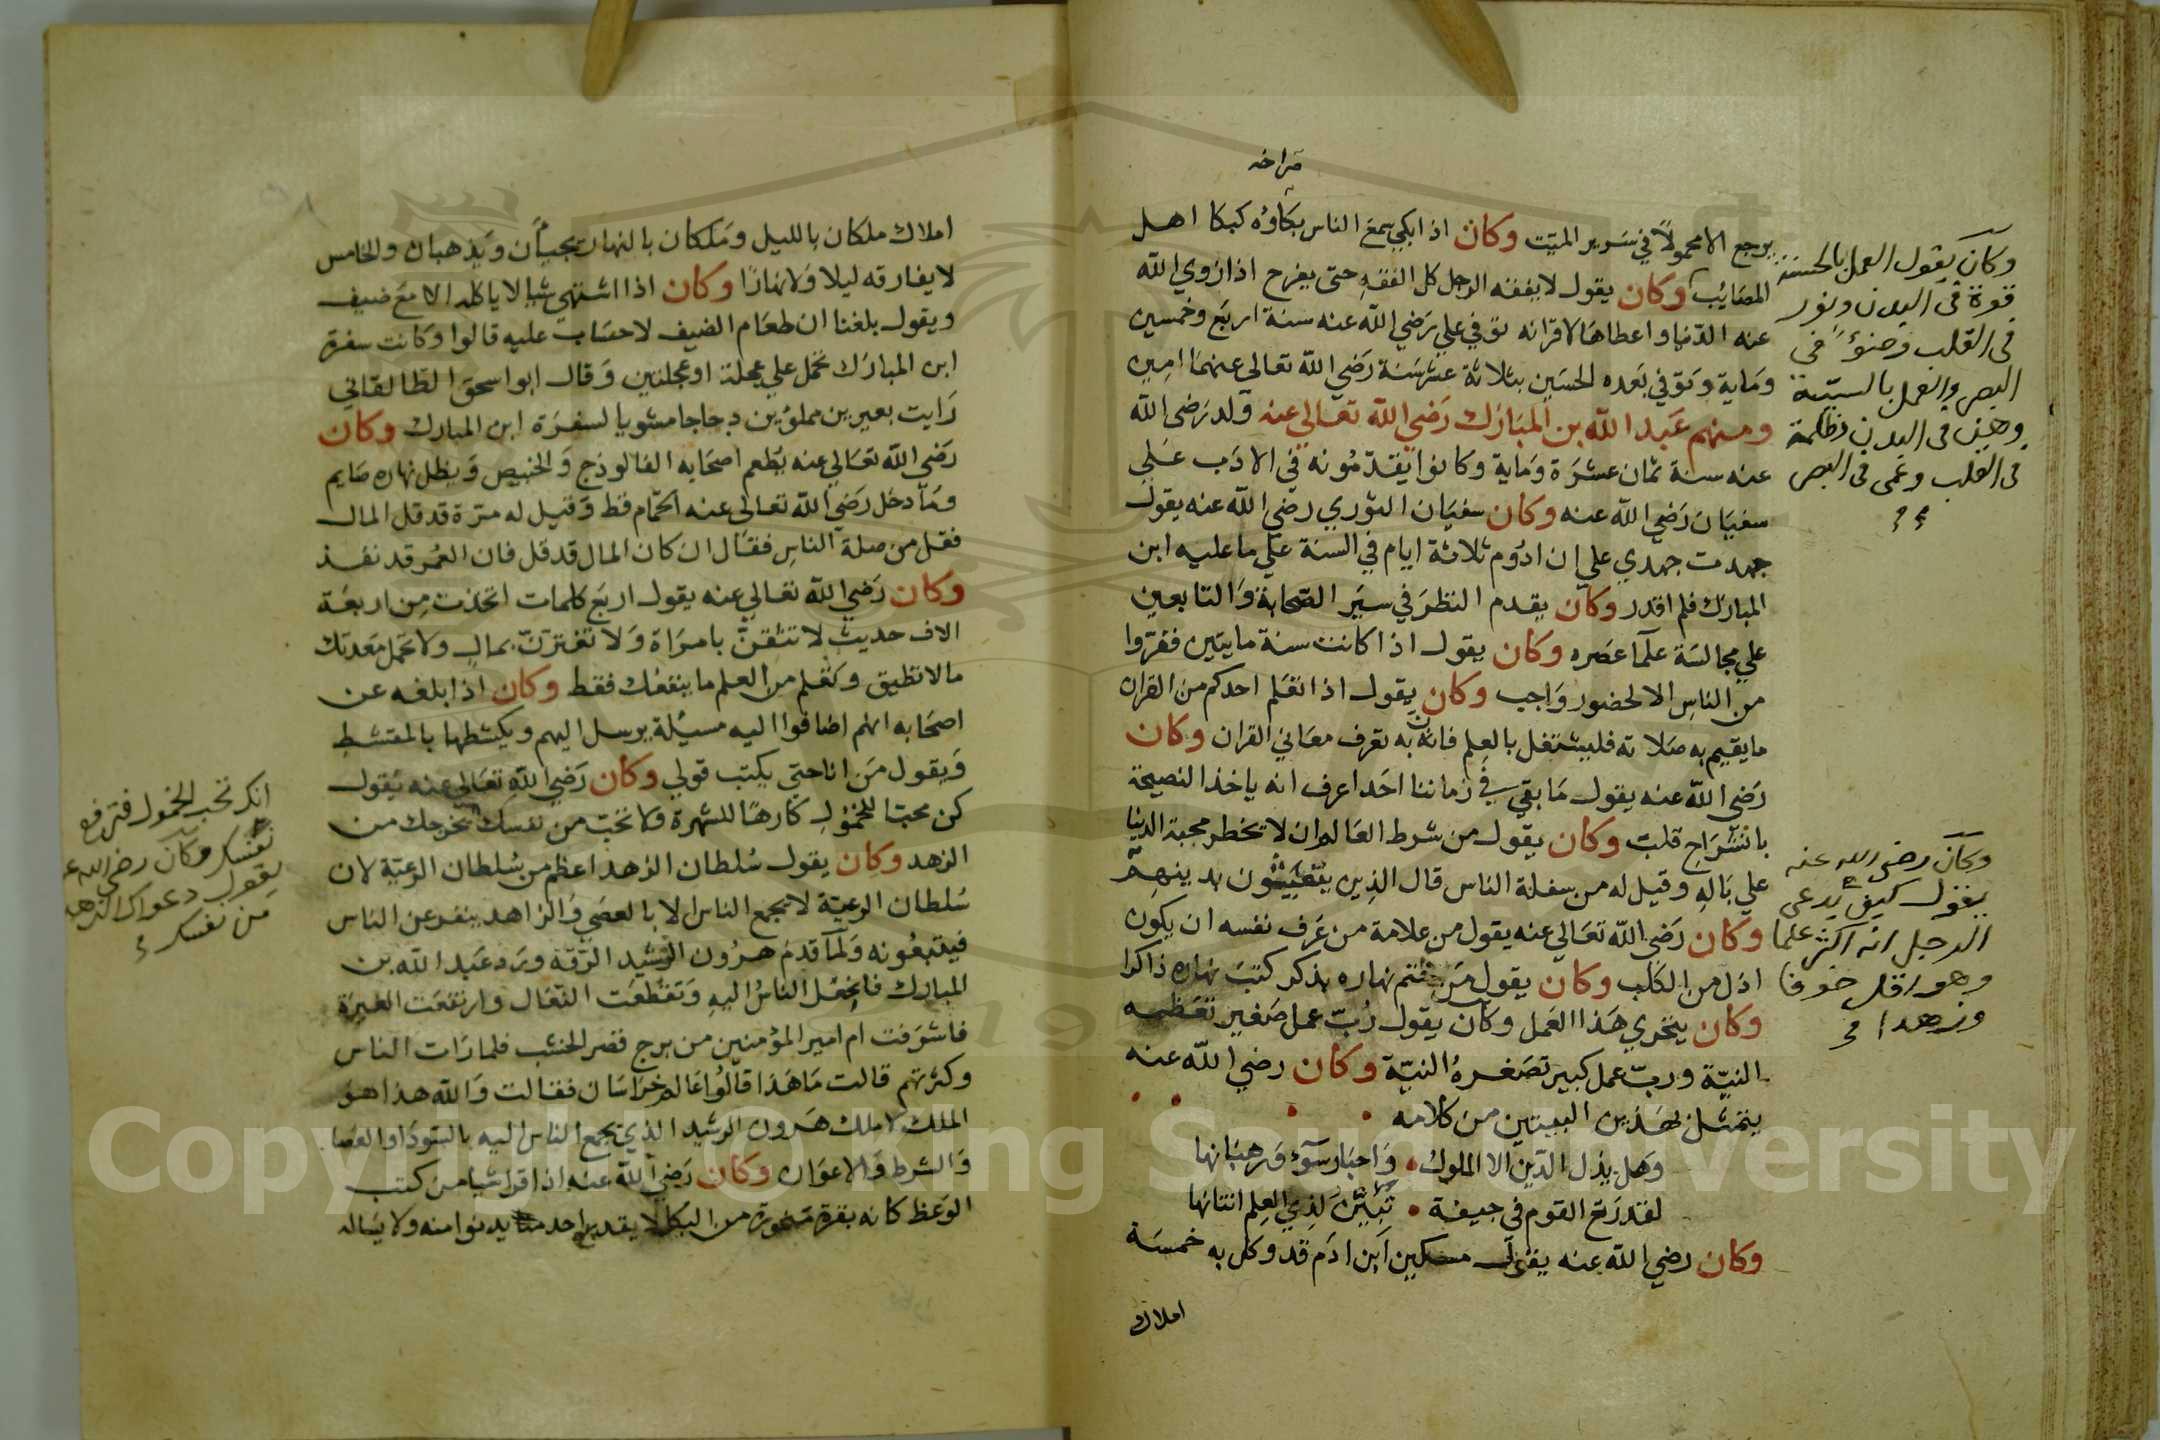 يرجع الا محمولاً في سرير الميت وكان اذا بكي يسمع الناس بكاؤه كبكا اهل
المصايب وكان يقول لا يفقه الرجل كل الفقه حتى يفرح اذا زوي الله
عنه الدنيا واعطاها لاقرانه توفي علي رضي الله عنه سنة اربع وخمسين
وماية وتوفي بعده الحسين بثلاثة عشر سنة رضي الله تعالى عنهما امين
ومنهم عبد الله بن المبارك رضي الله تعالي عنه ولد رضى الله
عنه سنة ثمان عشرة وماية وكانوا يقدمونه في الادب علي
سفيان رضي الله عنه وكان سفيان الثوري رضي الله عنه يقول
جهدت جهدي علي ان ادوم ثلاثة ايام في السنة علي ما عليه ابن
المبارك فلم اقدر وكان يقدم النظر في سير الصحابة والتابعين
علي مجالسة علما عصره وكان يقول اذا كانت سنة مايتين ففروا
من الناس الا لحضور واجب وكان يقول اذا تعلم احدكم من القران
ما يقيم به صلاته فليشتغل بالعلم فانه به تعرف معاني القران وكان
رضي الله عنه يقول ما بقي في زماننا احدا عرف انه ياخذ النصيحة
بانشراح قلب وكان يقول من شرط العالم ان لا تخطر محبة الدنيا
علي باله وقيل له من سفلة الناس قال الذين يتعيشون بدينهم
وكان رضي الله تعالي عنه يقول من علامة من عرف نفسه ان يكون
اذل من الكلب وكان يقول من ختم نهاره بذكر كتب نهاره ذاكرا
وكان يتحري هذا العمل وكان يقول رُبّ عمل صغير تعظمه
النية ورب عمل كبير تصغره النية وكان رضي الله عنه
يتمثل بهذين البيتين من كلامه
وهل بذل الدين الا الملوك واحبار سوء ورهبانها
لقد رتع القوم في جيفة تبين لذي العلم انتانها
وكان رضي الله عنه يقول مسكين ابن ادم قد وكل به خمسة
املاك
وكان يقول العمل بالحسنة
قوة في البدن ونور
في القلب وضوء في
البصر والعمل بالسيئة
وهن في البدن وظلمة
في القلب وعمى في البصر
وكان رضي الله عنه
يقول كيف يدعي
الرجل انه اكثر علما
وهو اقل خوفا
وزهدا
املاك ملكان بالليل وملكان بالنهار يجيبان ويذهبان والخامس
لا يفارقه ليلا ولا نهارا وكان اذا اشتهي شيا لا ياكله الا مع ضيف
ويقول بلغنا ان طعام الضيف لا حساب عليه قالوا وكانت سفرة
ابن المبارك تحمل علي عجلة او عجلتين وقال ابو اسحق الطالقاني
رايت بعيرين مملوين دجاجا مشويا لسفرة ابن المبارك وكان
رضي الله تعالي عنه يطعم اصحابه الفالوذج والخبيص ويظل نهاره صايم
وما دخل رضي الله تعالى عنه الحمام قط وقيل له مرة قد قل المال
فقل من صلة الناس فقال ان كان المال قد قل فان العمر قد نفذ
وكان رضي الله تعالي عنه يقول اربع كلمات اتخذت من اربعة
الاف حديث لا تثقن بامراة ولا تغترن بمال ولا تحمل معدتك
ما لا تطيق وتعلم من العلم ما ينفعك فقط وكان اذا بلغه عن
اصحابه انهم اضافوا اليه مسيلة يرسل اليهم ويكشطها بالمقشط
ويقول من انا حتي يكتب قولي وكان رضي الله تعالي عنه يقول
كن محبا للخمول كارها للشهرة ولا تحب من نفسك انك تخرجك من
الزهد وكان يقول سلطان الزهد اعظم من سلطان الرعية لان
سلطان الرعية لا يجمع الناس الا بالعصي والزاهد ينفر عن الناس
فيتبعونه ولما قدم هرون الرشيد الرقة ورد عبد الله بن
المبارك فانجفل الناس اليه وتقطعت النعال وارتفعت الغبرة
فاشرفت ام امير المؤمنين من برج قصر الخشب فلما رات الناس
وكثرتهم قالت ما هذا قالوا عالم خراسان فقالت والله هذا هو
الملك لا ملك هرون الرشيد الذي يجمع الناس اليه بالسوط والعصا
والشرط والاعوان وكان رضي الله عنه اذا قرا شيا من كتب
الوعظ كانه بقرة منحورة من البكا لا يقدر احد منا يدنوا منه ولا يساله
انك تحب الخمول فترفع
نفسك وكان رضي الله عنه
يقول دعواك الزهد
من نفسك
Copyright © King Saud University